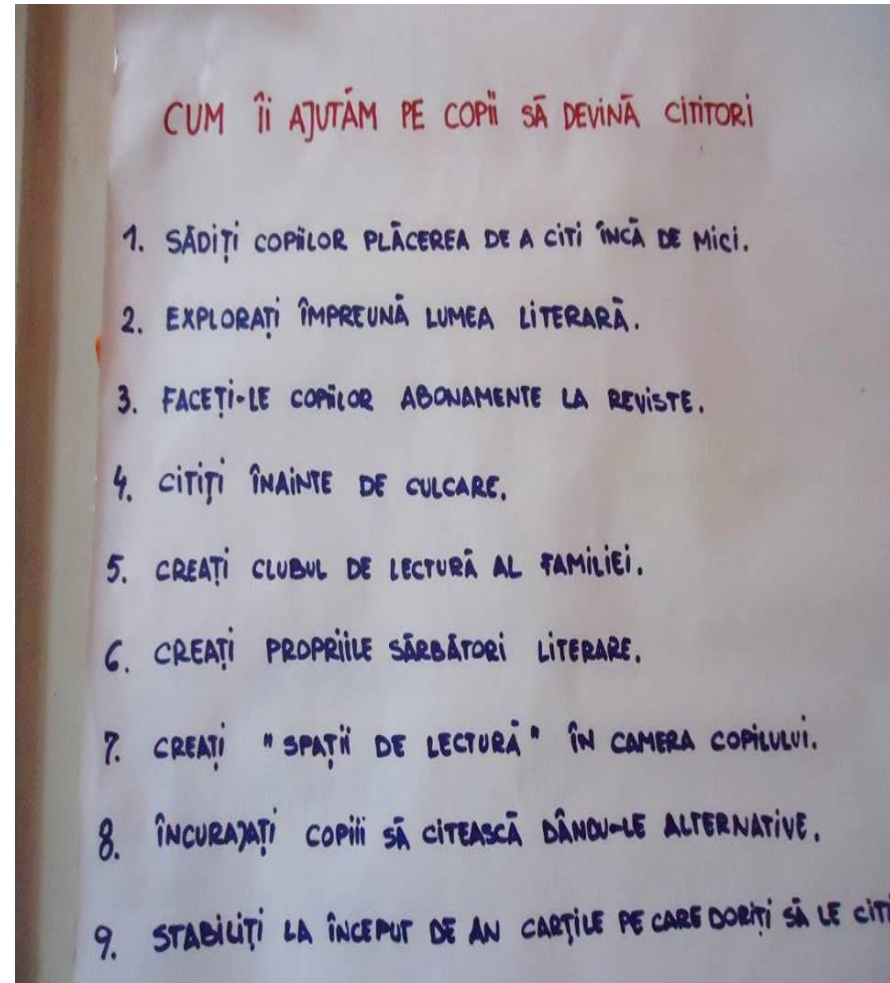 CUM ÎI AJUTĂM PE COPII SĂ DEVINĂ CITITORI
1. SĂDIȚI COPIILOR PLĂCEREA DE A CITI ÎNCĂ DE MICI.
2. EXPLORAȚI ÎMPREUNĂ LUMEA LITERARĂ.
3. FACEȚI-LE COPIILOR ABONAMENTE LA REVISTE.
4. CITIȚI ÎNAINTE DE CULCARE.
5. CREAȚI CLUBUL DE LECTURĂ AL FAMILIEI.
6. CREAȚI PROPRIILE SĂRBĂTORI LITERARE.
7. CREAȚI "SPAȚII DE LECTURĂ" ÎN CAMERA COPILULUI.
8. ÎNCURAJAȚI COPIII SĂ CITEASCĂ DÂNDU-LE ALTERNATIVE.
9. STABILIȚI LA ÎNCEPUT DE AN CARȚILE PE CARE DORIȚI SĂ LE